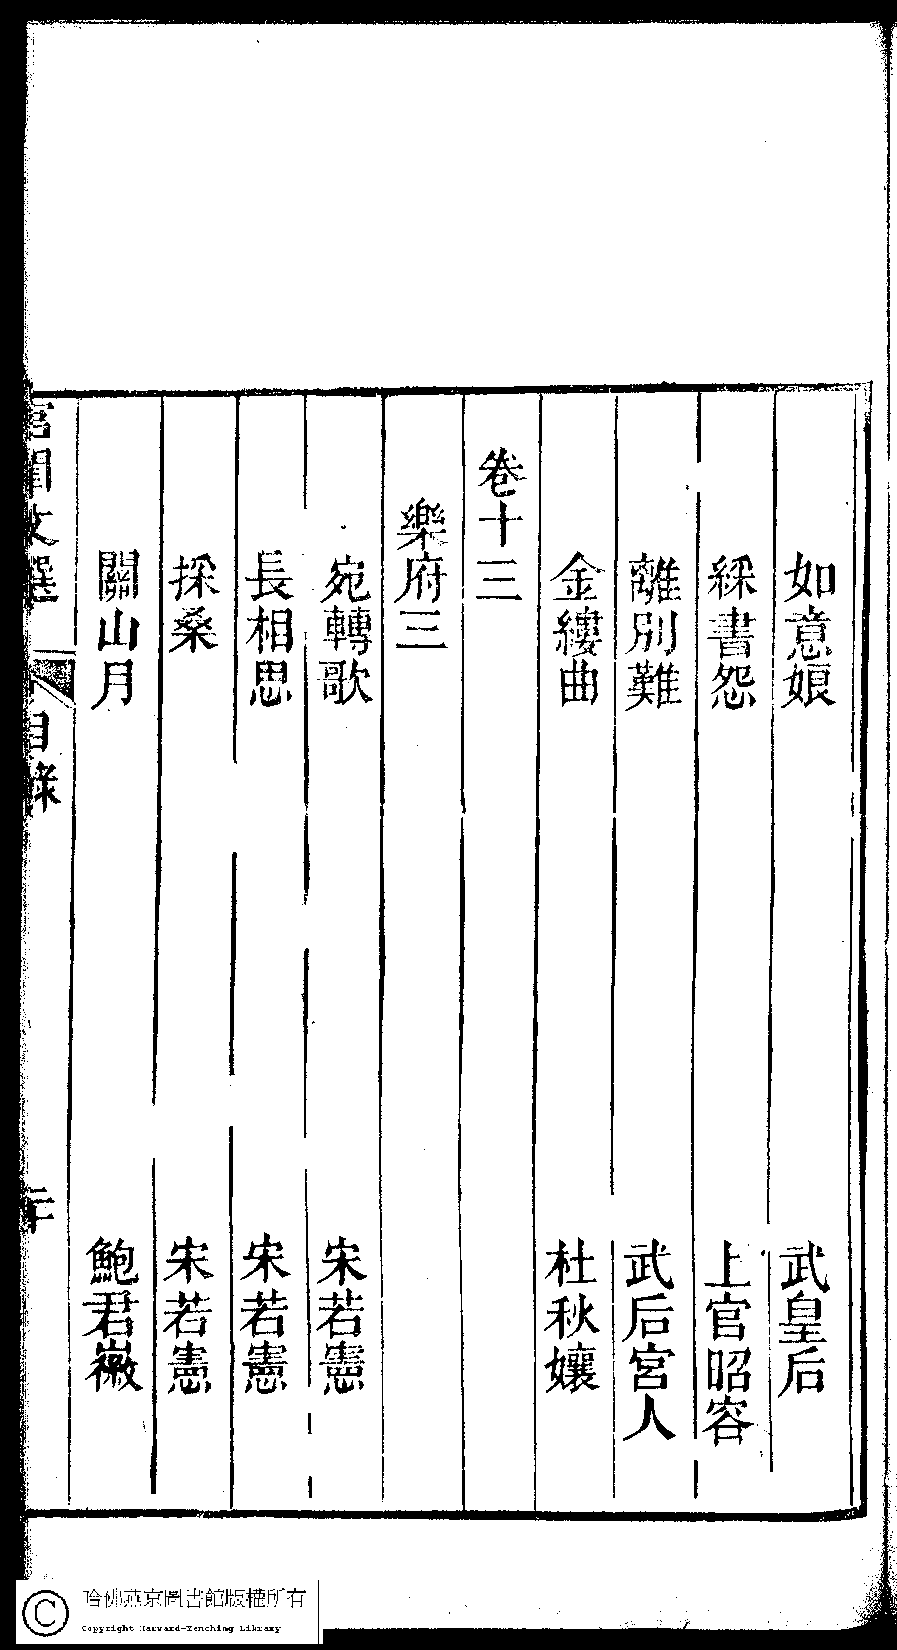 如意娘 武皇后
綵書怨 上官昭容
離別難 武后宮人
金縷曲 杜秋孃
卷十三
樂府三
宛轉歌 宋若憲
長相思 宋若憲
採桑 宋若憲
關山月 鮑君徽
宮閨文選 目錄 二十
哈佛燕京圖書館版權所有
Copyright Harvard-Yenching Library